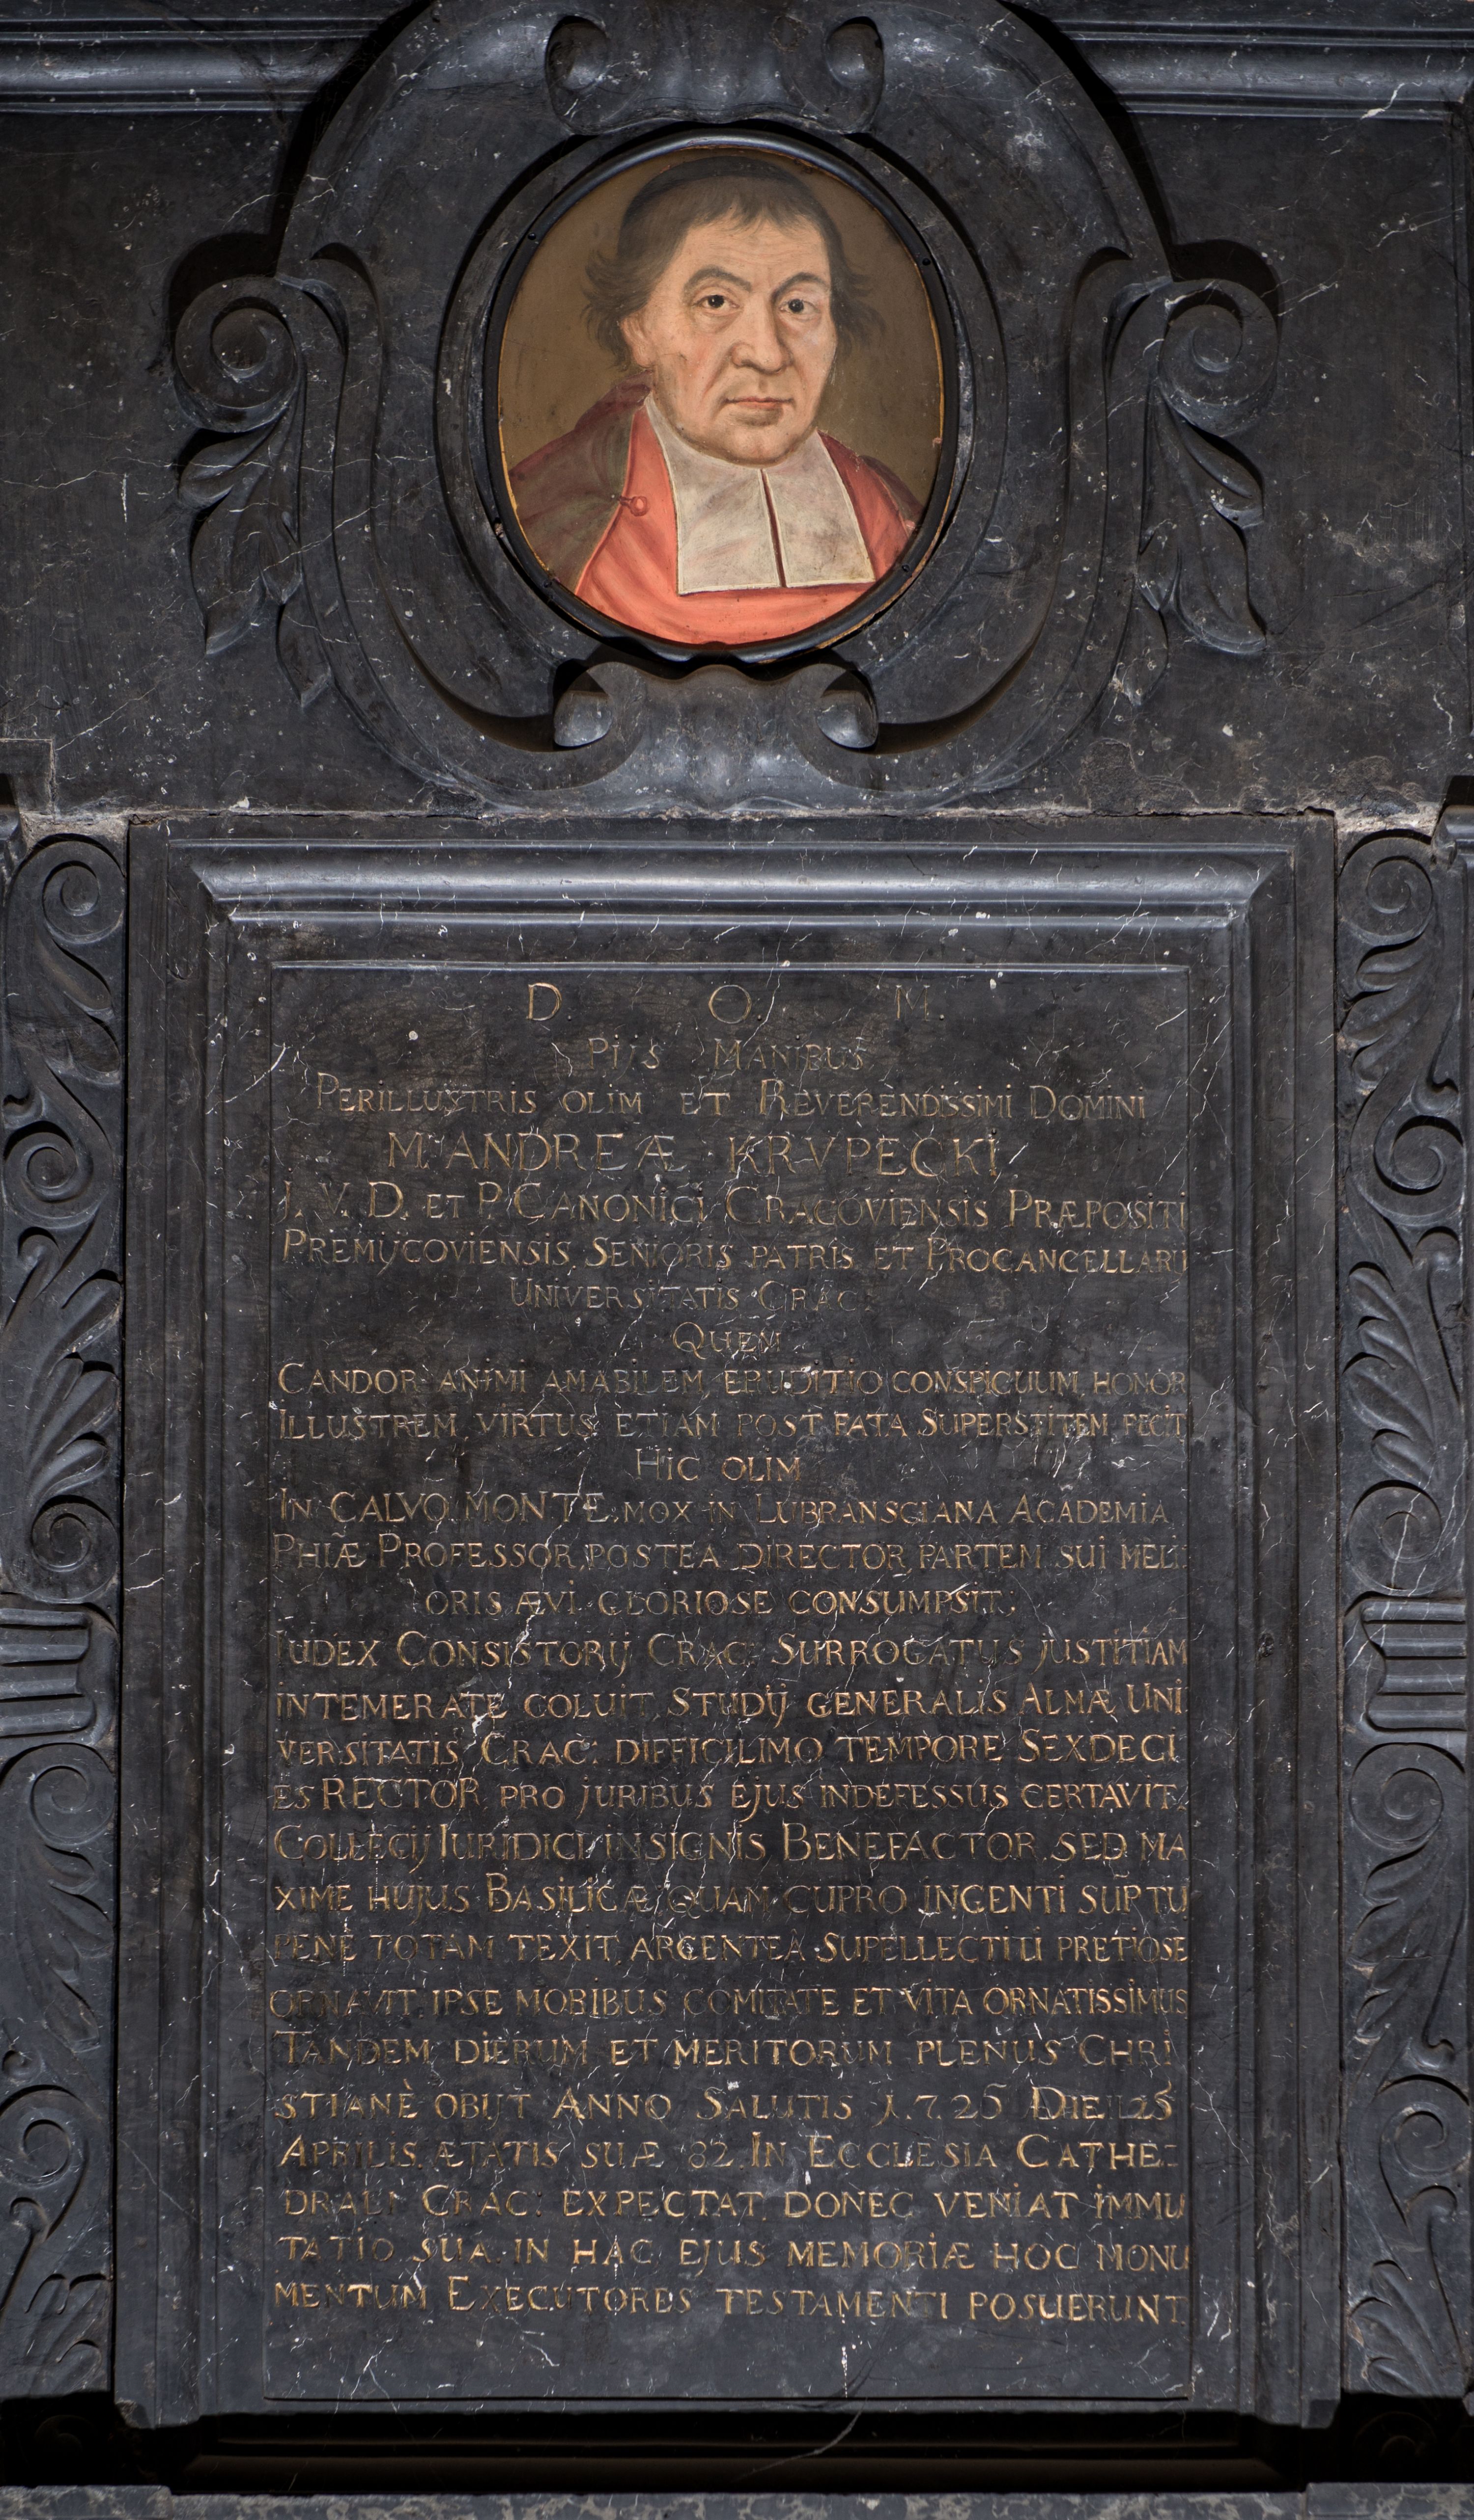 D. O. M.
Pijs Manibus
Perillustris olim et Reverendissimi Domini
M. ANDREÆ KRVPECKI
J. V. D. et P. Canonici Cracoviensis Præpositi
Premijcoviensis Senioris patris et Procancellarij
Universitatis Crac:
Quem
Candor animi amabilem, eruditio conspicuum, honor
illustrem, virtus etiam post fata superstitem fecit
Hic olim
In CALVO MONTE mox in Lubransciana Academia
Phiæ Professor, postea director partem sui meli
oris ævi gloriose consumpsit,
Iudex Consistorij Crac: Surrogatus justitiam
intemerate coluit, Studij generalis Almæ Uni
versitatis Crac: difficilimo tempore Sexdeci
es RECTOR pro juribus ejus indefessus certavit.
Collegij Iuridici insignis Benefactor, sed ma
xime hujus Basilicæ, quam cupro ingenti suptu
penè totam texit, argentea supellectili pretiose
ornavit, ipse moribus comitate et vita ornatissimus
Tandem dierum et meritorum plenus Chri
stianè obijt Anno Salutis 1.7.25 Die 25
Aprilis, ætatis suæ 82. In Ecclesia Cathe-
drali Crac: expectat, donec veniat immu
tatio sua. in hac ejus memoriæ hoc monu
mentum Executores testamenti posuerunt